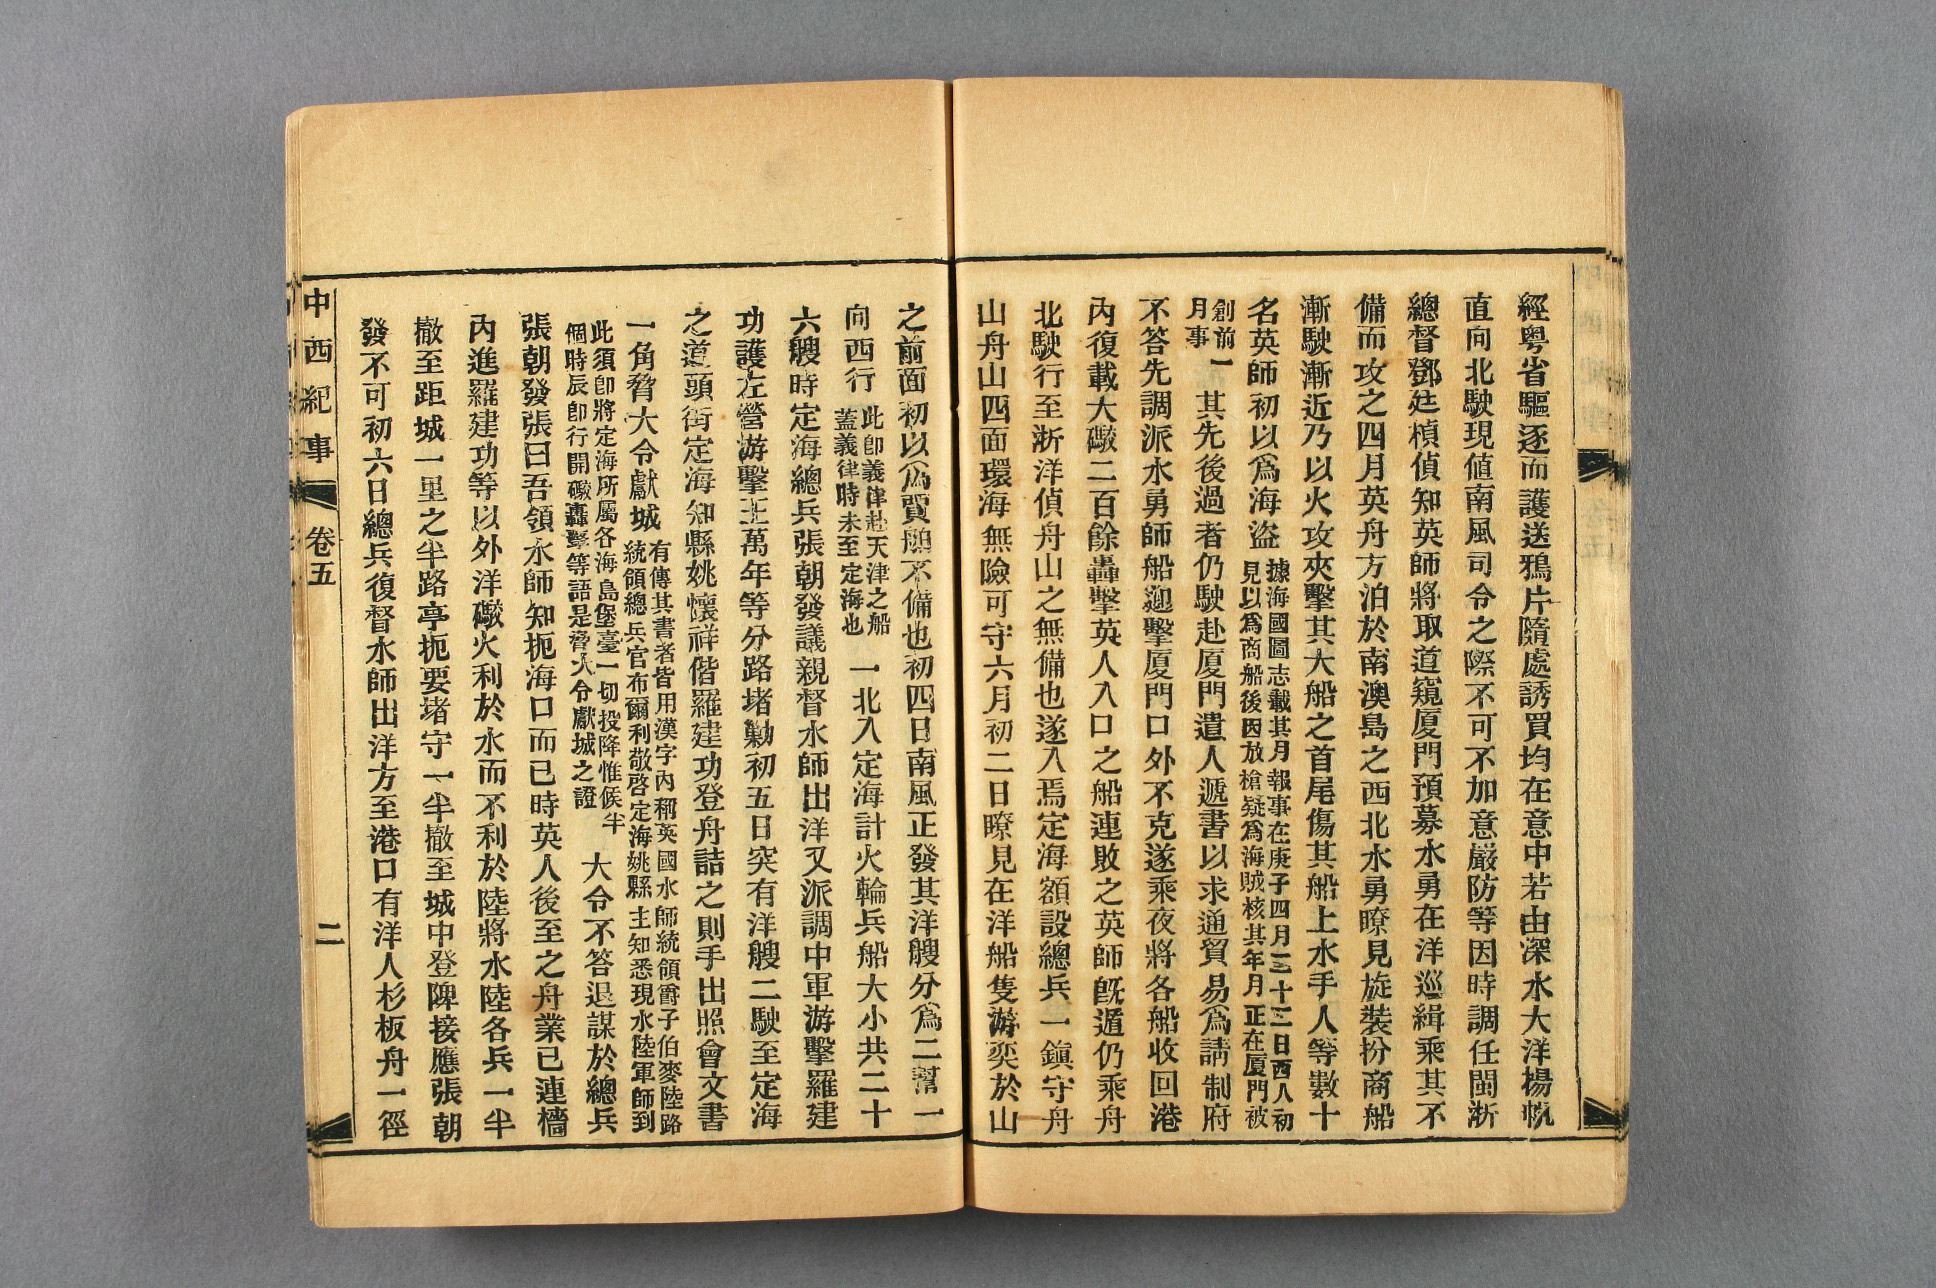 經粵省驅逐而護送鴉片隨處誘買均在意中若由深水大洋揚帆
直向北駛現值南風司令之際不可不加意嚴防等因時調任閩浙
總督鄧廷楨偵知英師將取道窺廈門預募水勇在洋巡緝乘其不
備而攻之四月英舟方泊於南澳島之西北水勇瞭見旋裝扮商船
漸駛漸近乃以火攻夾擊其大船之首尾傷其船上水手人等數十
名英師初以爲海盜
據海國圖志載其月報事在庚子四月二十二日西人初
見以爲商船後因放槍疑爲海賊核其年月正在廈門被
創前一
月事
其先後過者仍駛赴廈門遣人遞書以求通貿易爲請制府
不答先調派水勇師船迎擊厦門口外不克遂乘夜將各船收回港
內復載大礮二百餘轟擊英人入口之船連敗之英師旣遁仍乘舟
北駛行至浙洋偵舟山之無備也遂入焉定海額設總兵一鎭守舟
山舟山四面環海無險可守六月初二日瞭見在洋船隻游奕於山
之前面初以爲賈舶不備也初四日南風正發其洋艘分爲二幫一
向西行
此卽義律赴天津之船
蓋義律時未至定海也
一北入定海計火輪兵船大小共二十
六艘時定海總兵張朝發議親督水師出洋又派調中軍游擊羅建
功護左營游擊王萬年等分路堵勦初五日突有洋艘二駛至定海
之道頭街定海知縣姚懷祥偕羅建功登舟詰之則手出照會文書
一角脅大令獻城
有傳其書者皆用漢字內稱英國水師統領爵子伯麥陸路
統領總兵官布爾利敬啓定海姚縣主知悉現水陸軍師到
此須卽將定海所屬各海島堡臺一切投降惟候半
個時辰卽行開礮轟擊等語是脅大令獻城之證
大令不答退謀於總兵
張朝發張曰吾領水師知扼海口而已時英人後至之舟業已連檣
內進羅建功等以外洋礮火利於水而不利於陸將水陸各兵一半
撤至距城一里之半路亭扼要堵守一半撤至城中登陴接應張朝
發不可初六日總兵復督水師出洋方至港口有洋人杉板舟一徑
中西紀事
卷五
二